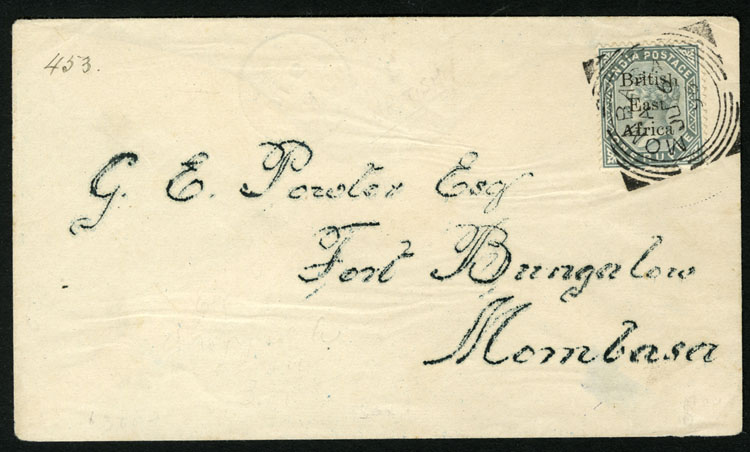 453.
INDIA POSTAGE
British
East
Africa
MOMBASA
G. E. Powter Esq
Fort Bungalow
Mombasa